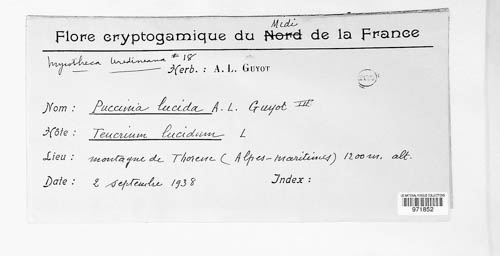 Midi
Flore cryptogamique du Nord de la France
Mycotheca Uredineana #18
Herb.: A. L. GUYOT
Nom: Puccinia lucida A. L. Guyot III
Hôte: Teucrium lucidum L
Lieu: montagne de Thorenc (Alpes-maritimes) 1200 m. alt.
Date: 2 septembre 1938 Index:
US NATIONAL FUNGUS COLLECTIONS
971852